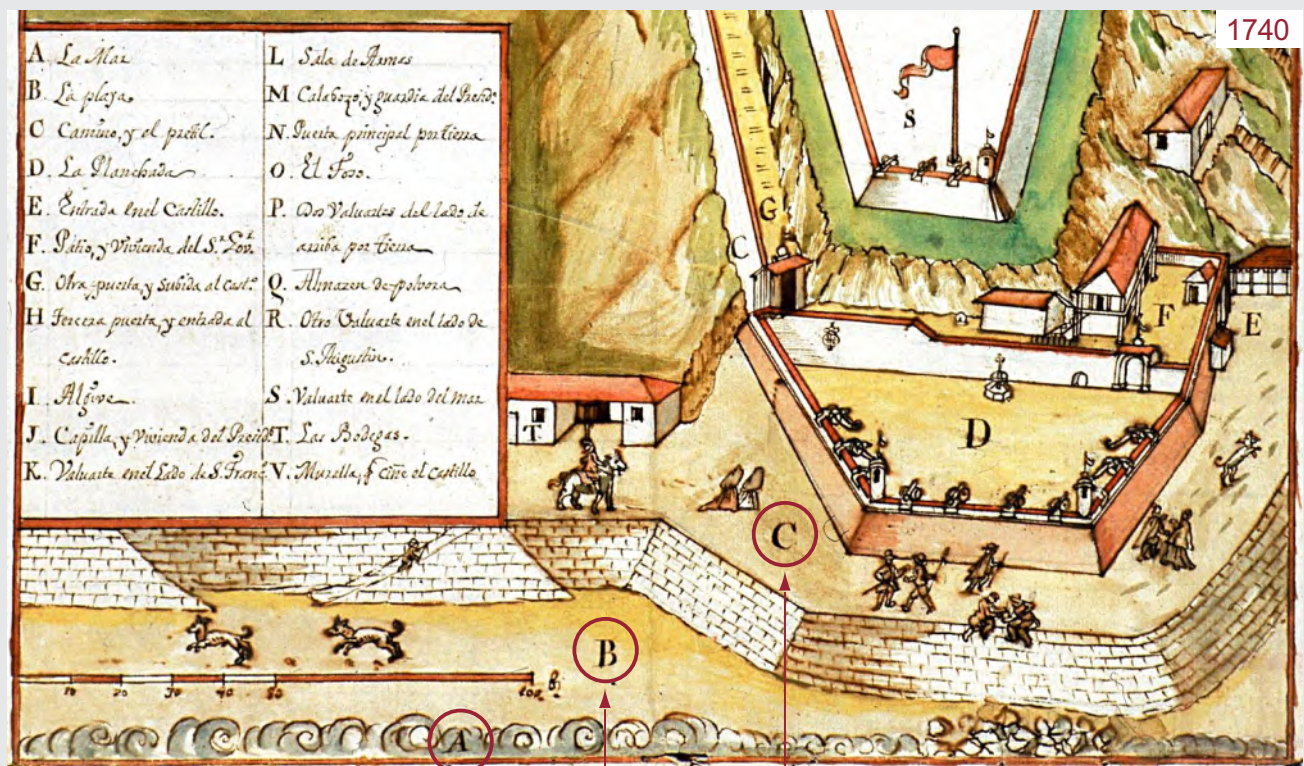 1740
A La Mar
B. La playa.
C Camino, y el pretil.
D. La Planchada
E. Entrada enel Castillo.
F. Pátio, y Vivienda del S.r Gov.r
G. Otra puerta, y Subida al Cast.o
H Tercera puerta, y entrada al
Castillo.
I. Algive
J. Capilla, y Vivienda del Presid.
K. Valuarte en el Lado de S. Franc.
L Sala de Armas
M Calabozo, y guardia del Presid.o
N. Puerta principal por tierra
O. El Foso.
P. Dos Valuartes del lado de
arriba por tierra
Q. Almazen de polvora
R. Otro Valuarte enel lado de
S. Augustin.
S. Valuarte enel lado del mar
T. Las Bodegas.
V. Muralla, q̃ ciñe el Castillo
S
G
C
F
E
T
D
C
B
10 20 30 40 50 100
A